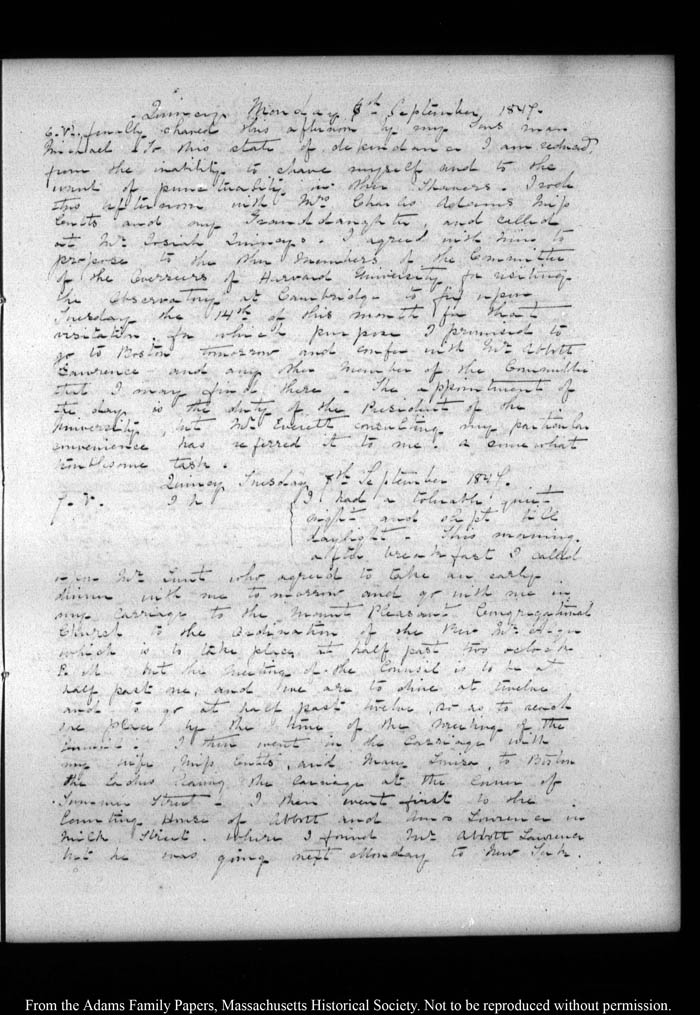 Quincy Monday 6th September 1847.
6. VI. finally shaved this afternoon by my Sons man
Michael. To this state of dependance I am reduced,
from the inability to shave myself and to the
want of punctuality in other Shavers. I rode
this afternoon with Mrs Charles Adams Miss
Cutts and my Granddaughter, and called
at Mr Josiah Quincy's. I agreed with him to
propose to the other Members of the Committee
of the Overseers of Harvard University for visiting
the Observatory at Cambridge to fix upon
Tuesday the 14th of this month for that
visitation for which purpose I promised to
go to Boston tomorrow and confer with Mr Abbott
Lawrence and any other Member of the Committee
that I may find there. The appointment of
the day is the duty of the President of the
University, but Mr Everett consulting my particular
convenience has referred it to me. a somewhat
task.
Quincy Tuesday 7th September 1847.
7. V. I had a tolerable quiet
night and slept till
daylight. This morning
after breakfast I called
upon Mr Lunt who agreed to take an early
dinner with me tomorrow and go with me in
my Carriage to the Mount Pleasant Congregational
Church to the Ordination of the Rev. Mr Alger
which is to take place at half past two o'clock
P. M. but the Meeting of the Council is to be at
half past one, and we are to dine at twelve
and to go at half past twelve, so as to reach
the place by the time of the meeting of the
Council. I then went in the Carriage with
my wife Miss Cutts, and Mary Louisa, to Boston
the Ladies leaving the Carriage at the Corner of
Summer Street. I then went first to the
Counting House of Abbott and Amos Lawrence in
Milk Street. where I found Mr Abbott Lawrence
but he was going next Monday to New York.
From the Adams Family Papers, Massachusetts Historical Society. Not to be reproduced without permission.